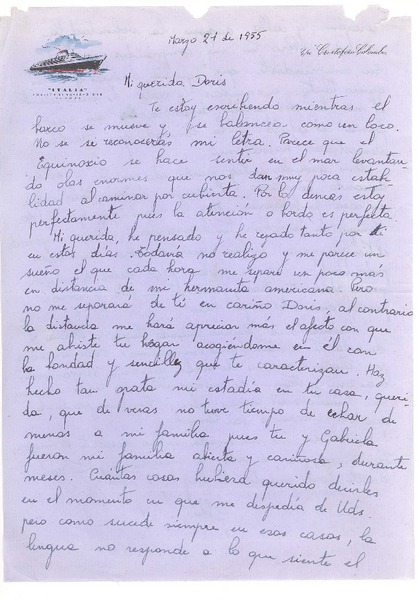 Marzo 21 de 1955
m/n Cristoforo Colombo
"ITALIA"
Mi querida Doris
Te estoy escribiendo mientras el
barco se mueve y se balancea como un loco.
No se si reconocerás mi letra. Parece que el
Equinoxio se hace sentir en el mar levantan-
do olas enormes que nos dan muy poca estabi-
lidad al caminar por cubierta. Por lo demás estoy
perfectamente pues la atención a bordo es perfecta.
Mi querida, he pensado y he rezado tanto por ti
en estos días. Todavía no realizo y me parece un
sueño el que cada hora me separe un poco más
en distancia de mi hermanita americana. Pero
no me separará de tí en cariño Doris, al contrario
la distancia me hará apreciar más el afecto con que
me abriste tu hogar acogiéndome en él con
la bondad y sencillez que te caracterizan. Haz
hecho tan grata mi estadía en tu casa, queri-
da, que de veras no tuve tiempo de echar de
menos a mi familia pues tu y Gabriela
fueron mi familia abierta y cariñosa, durante
meses. Cuántas cosas hubiera querido decirles
en el momento en que me despedía de Uds.
pero como sucede siempre en esos casos, la
lengua no responde a lo que siente el